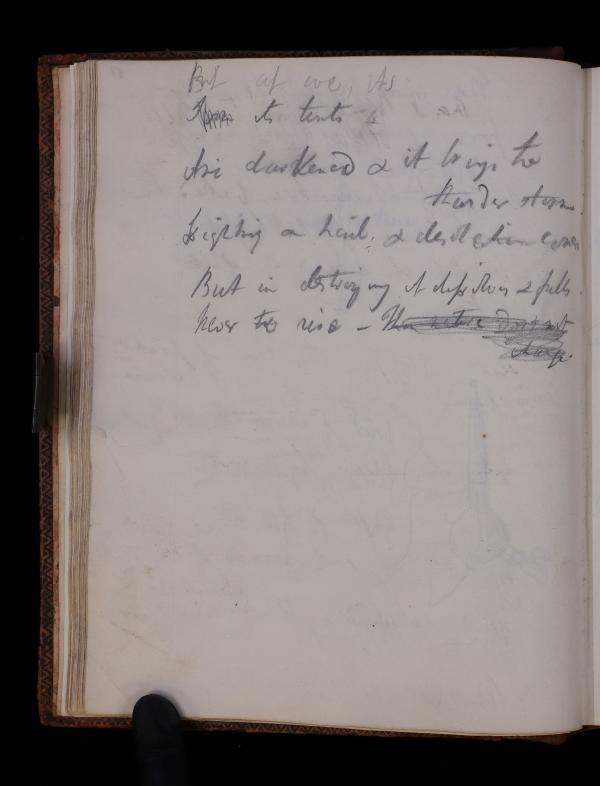 But at eve, its
its tints &
Are darkened & it brings the
thunder storm
Lightng & hail; & desolation comes
But in destroying it dissolves & falls
Never to rise –